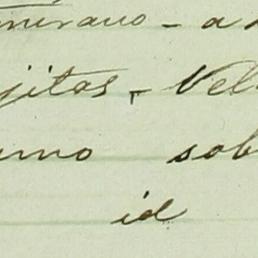 merano - a
jitas - Vel
umo sob
id